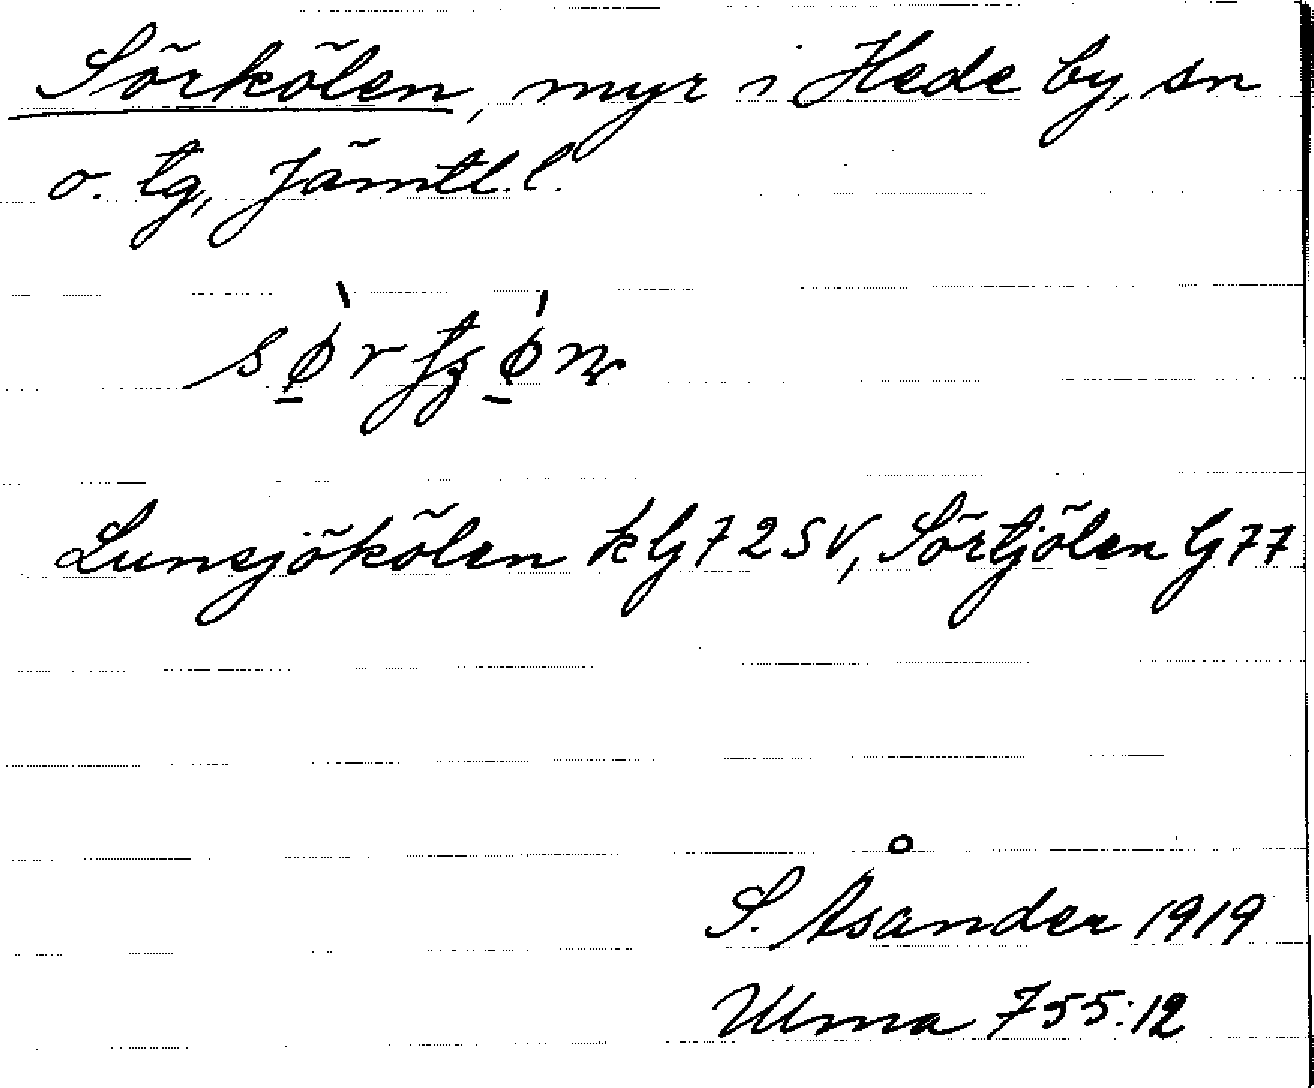 Sörkölen, myr i Hede by, sn
o. tg, Jämtl. l.
Lunsjökölen kG72SV, Sörtjölen G77
S. Åsander 1919
Ulma 755:12